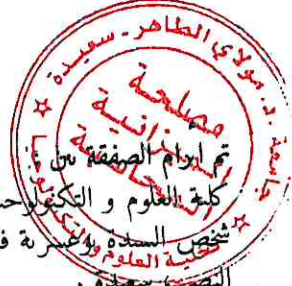 جامعة د. مولاي الطاهر - سعيدة
مصلحة
الميزانية
المحاسبة
كلية العلوم والتكنولوجيا
تم ابرام الصفقة بين :
كلية العلوم و التكنولوجيا
شخص السيدة بوعسرية ف